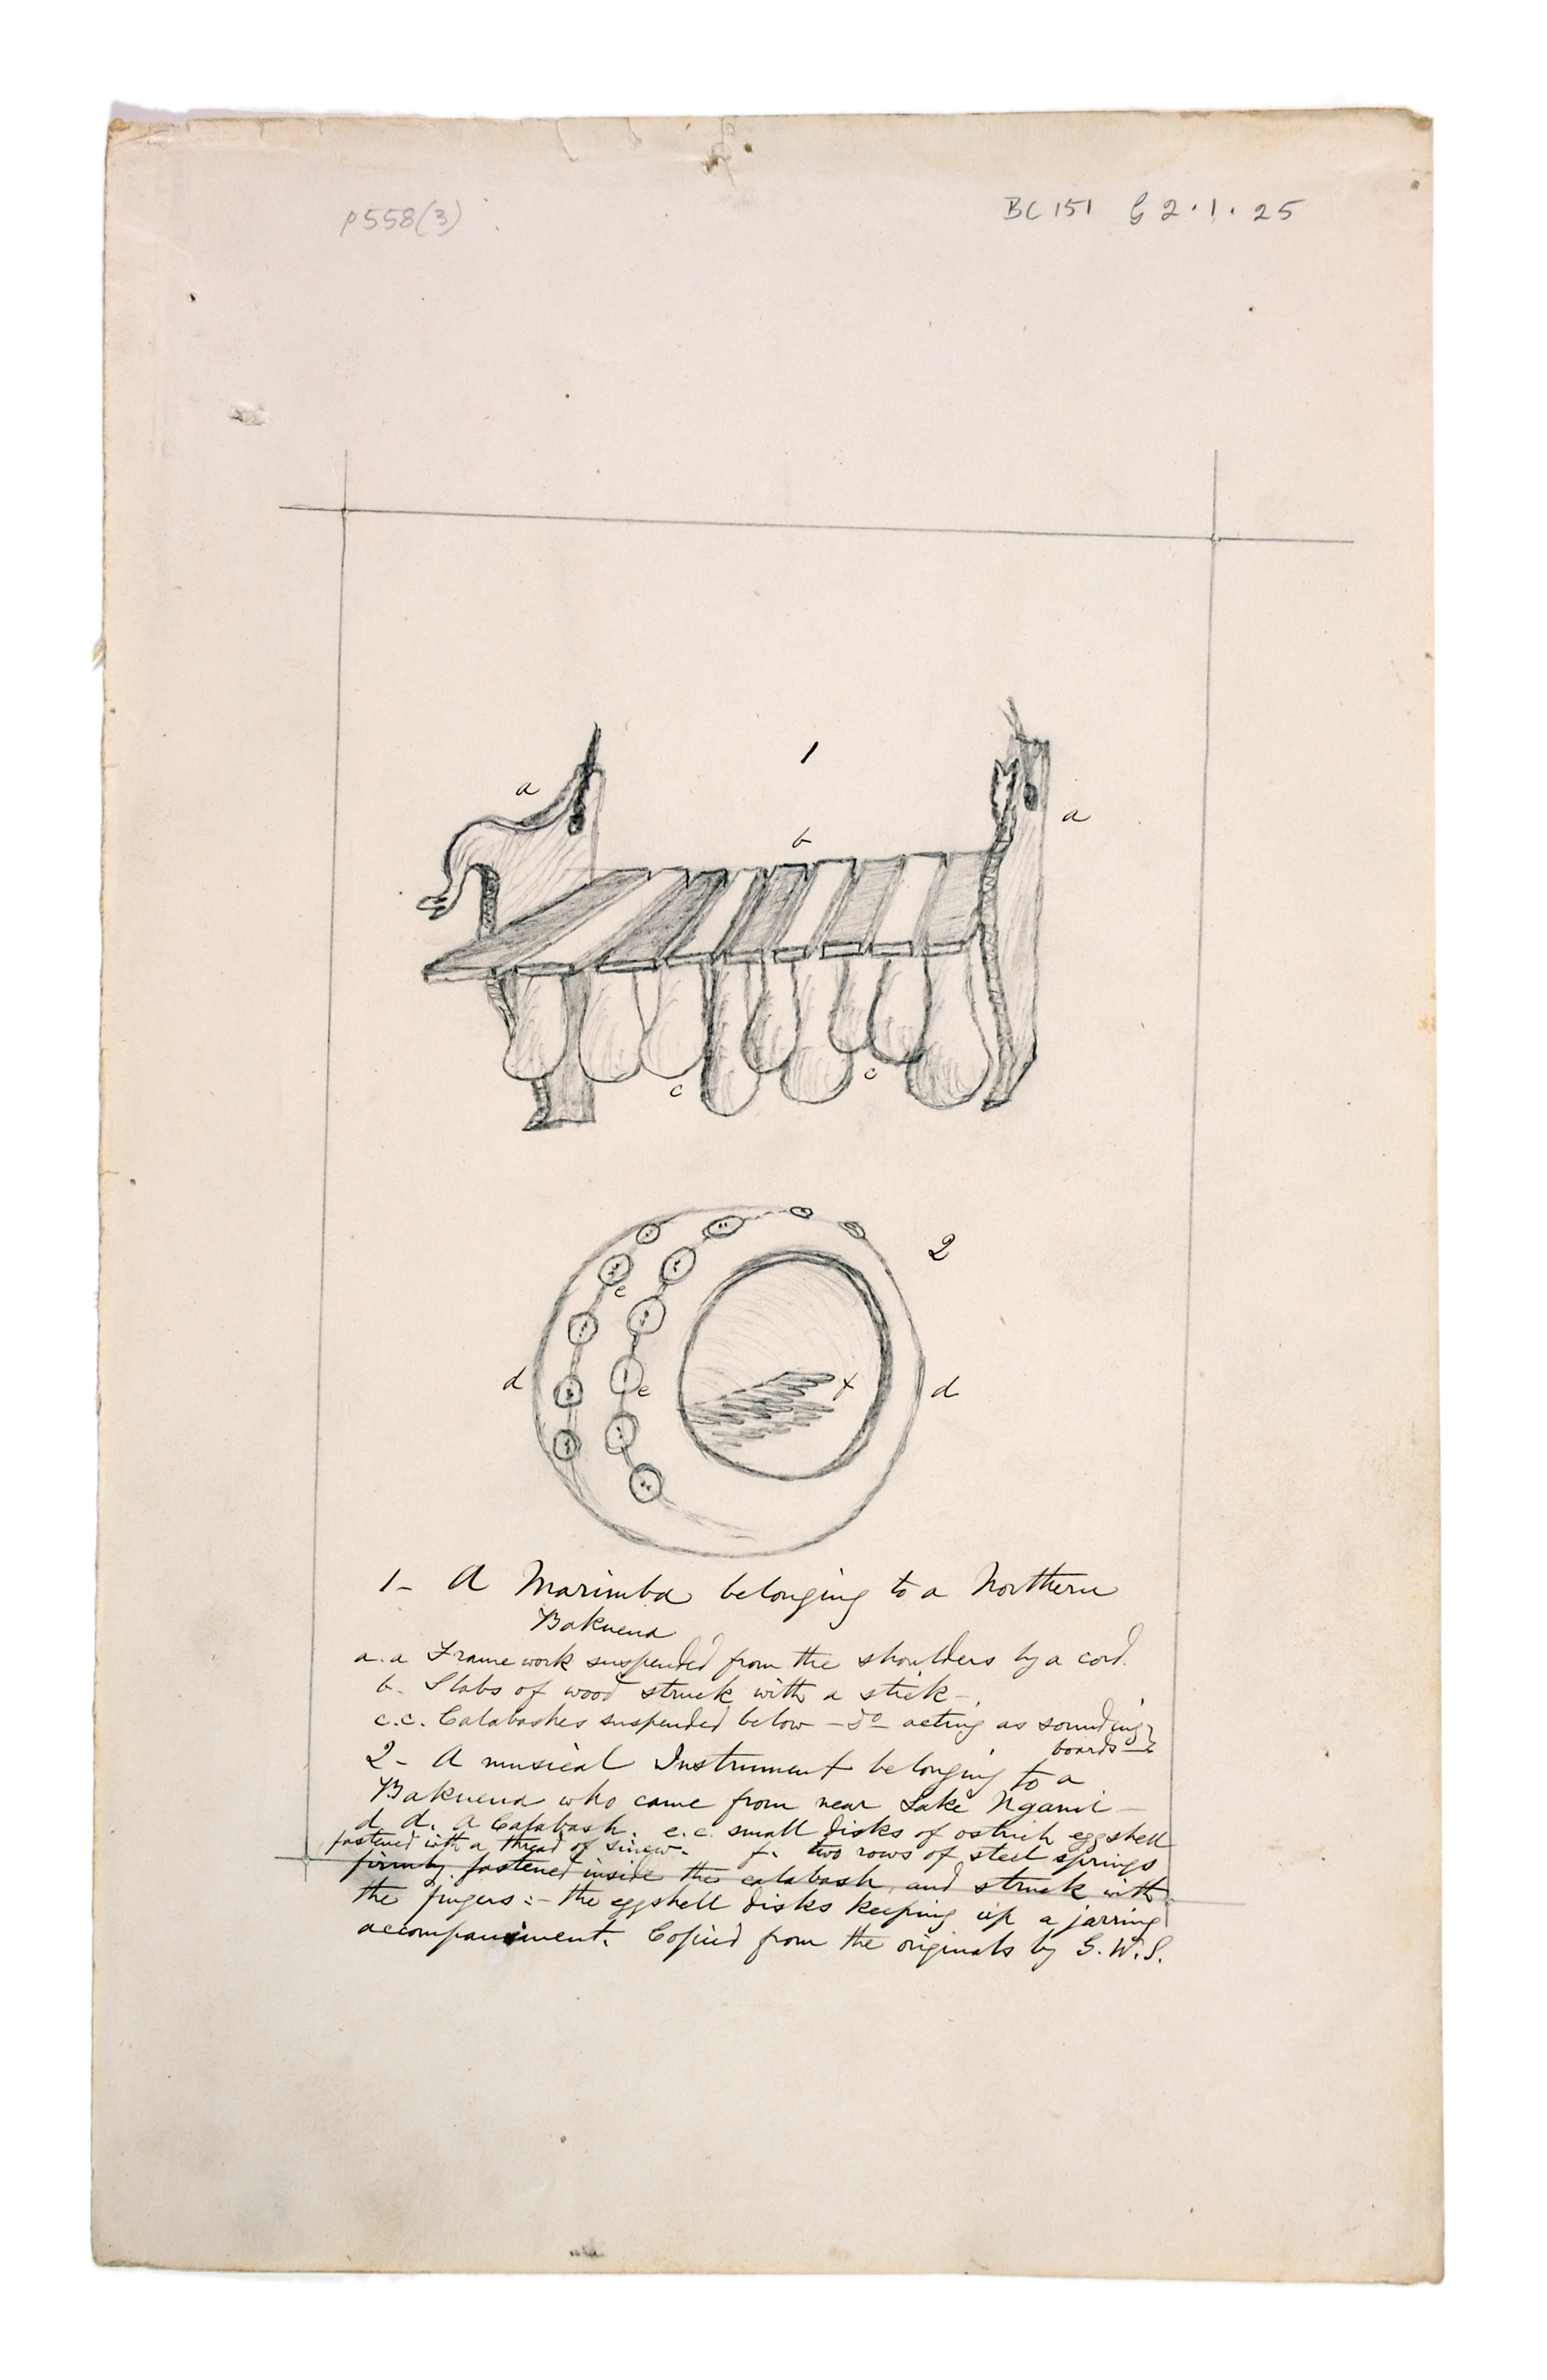 p558(3)
BC 151 G 2.1.25
1
a
a
b
c
c
2
e
d
e
x
d
1- A Marimba belonging to a Northern
Bakuena
a.a Frame work suspended from the shoulders by a cord.
b. Slabs of wood struck with a stick -.
c.c. Calabashes suspended below - do acting as sounding
boards -
2- A musical Instrument belonging to a
Bakuena who came from near Lake Ngami -
d d. A Calabash. e.e. small disks of ostrich eggshell
fastened with a thread of sinew. f. two rows of steel springs
firmly fastened inside the calabash, and struck with
the fingers :- the eggshell disks keeping up a jarring
accompaniment. Copied from the originals by G.W.S.